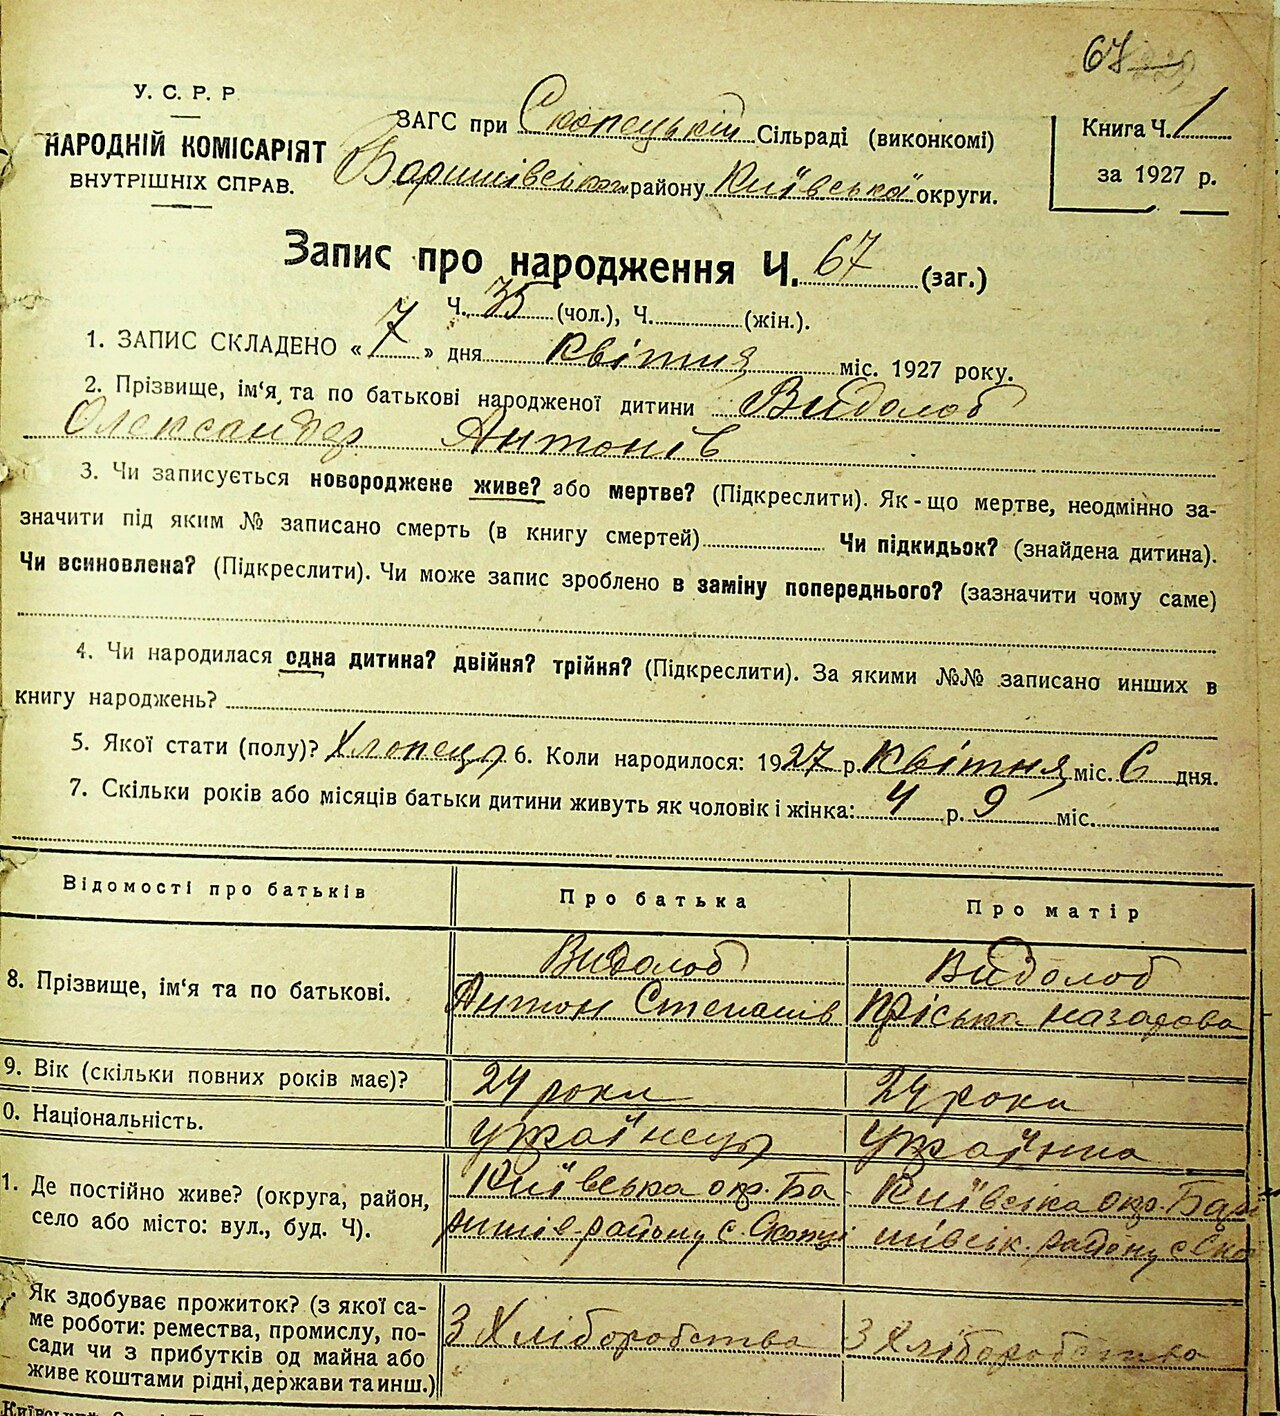 67
У. С. Р. Р
НАРОДНІЙ КОМІСАРІЯТ
ВНУТРІШНІХ СПРАВ.
ЗАГС при Скопецькій Сільраді (виконкомі)
Баришівського району Київської округи.
Книга Ч. 1
за 1927 р.
Запис про народження Ч. 67 (заг.)
Ч. 35 (чол.), Ч. (жін.).
1. ЗАПИС СКЛАДЕНО « 7 » дня квітня міс. 1927 року.
2. Прізвище, ім‘я та по батькові народженої дитини Видолоб
Олександер Антонів
3. Чи записується новороджене живе? або мертве? (Підкреслити). Як-що мертве, неодмінно за-
значити під яким № записано смерть (в книгу смертей) Чи підкидьок? (знайдена дитина).
Чи всиновлена? (Підкреслити). Чи може запис зроблено в заміну попереднього? (зазначити чому саме)
4. Чи народилася одна дитина? двійня? трійня? (Підкреслити). За якими №№ записано инших в
книгу народжень?
5. Якої стати (полу)? Хлопець 6. Коли народилося: 1927 р. Квітня міс. 6 дня.
7. Скільки років або місяців батьки дитини живуть як чоловік і жінка: 4 р. 9 міс.
Відомості про батьків Про батька Про матір
8. Прізвище, ім‘я та по батькові. Видолоб Антон Степанів Видолоб Пріська Назарова
9. Вік (скільки повних років має)? 24 роки 24 роки
0. Національність. Українець Українка
1. Де постійно живе? (округа, район, Київська окр. Ба- Київська окр. Бари
село або місто: вул., буд. Ч). ришів. району с. Скопці шівськ. району с. Ско
Як здобуває прожиток? (з якої са-
ме роботи: ремества, промислу, по- З Хліборобства З Хліборобства
сади чи з прибутків од майна або
живе коштами рідні, держави та инш.)